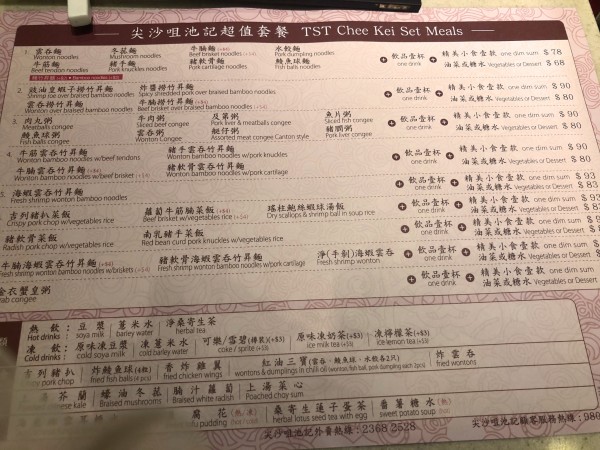 尖沙咀池記超值套餐 TST Chee Kei Set Meals
1. 雲吞麵 冬菇麵 牛腩麵 (+$4) 水餃麵
Wonton noodles Mushroom noodles Beef brisket noodles (+$4) Pork dumping noodles
牛筋麵 豬手麵 豬軟骨麵 鯪魚球麵
Beef tendon noodles Pork knuckles noodles Pork cartilage noodles Fish balls noodles
飲品壹杯 one drink
精美小食壹款 one dim sum $ 78
油菜或糖水 Vegetables or Dessert $ 68
2. 豉油皇蝦子撈竹昇麵 炸醬撈竹昇麵
Shrimp roe over braised bamboo noodles Spicy shredded pork over braised bamboo noodles
雲吞撈竹昇麵 牛腩撈竹昇麵 (+$4)
Wonton over braised bamboo noodles Beef brisket over braised bamboo noodles (+$4)
飲品壹杯 one drink
精美小食壹款 one dim sum $ 90
油菜或糖水 Vegetables or Dessert $ 80
3. 肉丸粥 牛肉粥 及第粥 魚片粥
Meatballs congee Sliced beef congee Pork liver & meatballs congee Sliced fish congee
鯪魚球粥 雲吞粥 艇仔粥 豬膶粥
Fish balls congee Wonton Congee Assorted meat congee Canton style Pork liver congee
飲品壹杯 one drink
精美小食壹款 one dim sum $ 90
油菜或糖水 Vegetables or Dessert $ 80
4. 牛筋雲吞竹昇麵 豬手雲吞竹昇麵
Wonton bamboo noodles w/beef tendons Wonton bamboo noodles w/pork knuckles
牛腩雲吞竹昇麵 (+$4) 豬軟骨雲吞竹昇麵
Wonton bamboo noodles w/beef brisket (+$4) Wonton bamboo noodles w/pork cartilage
飲品壹杯 one drink
精美小食壹款 one dim sum $ 90
油菜或糖水 Vegetables or Dessert $ 80
海蝦雲吞竹昇麵
Fresh shrimp wonton bamboo noodles
飲品壹杯 one drink
精美小食壹款 one dim sum $ 93
油菜或糖水 Vegetables or Dessert $ 83
吉列豬扒菜飯 蘿蔔牛筋腩菜飯 (+$4) 瑤柱鮑絲蝦球湯飯
Crispy pork chop w/vegetables rice Beef brisket w/vegetables rice (+$4) Dry scallops & shrimp ball in soup rice
豬軟骨菜飯 南乳豬手菜飯
Radish pork chop w/vegetables rice Red bean curd pork knuckles w/vegetables rice
飲品壹杯 one drink
精美小食壹款 one dim sum $ 93
油菜或糖水 Vegetables or Dessert
牛腩海蝦雲吞竹昇麵 (+$4) 豬軟骨海蝦雲吞竹昇麵 淨(手剝)海蝦雲吞
Fresh shrimp wonton bamboo noodles w/briskets (+$4) Fresh shrimp wonton bamboo noodles w/pork cartilage Fresh shrimp wonton
飲品壹杯 one drink
精美小食壹款 one dim sum
油菜或糖水 Vegetables or Dessert
金衣蟹皇粥
crab congee
飲品壹杯 one drink
精美小食壹款 one dim sum
油菜或糖水 Vegetables or Dessert
熱飲: 豆漿 薏米水 淨桑寄生茶
Hot drinks: soya milk barley water herbal tea
凍飲: 原味凍豆漿 凍薏米水 可樂/雪碧(樽裝)(+$3) 原味凍奶茶(+$3) 凍檸檬茶(+$3)
Cold drinks: cold soya milk cold barley water coke / sprite (+$3) ice milk tea (+$3) ice lemon tea (+$3)
吉列豬扒 炸鯪魚球(4粒) 香炸雞翼 紅油三寶(雲吞、鯪魚球、水餃各2只) 炸雲吞
pork chop fried fish balls (4 pcs) fried chicken wings wontons & dumplings in chili oil (wonton, fish ball, pork dumpling each 2pcs) fried wontons
芥蘭 蠔油冬菇 腩汁蘿蔔 上湯菜心
Chinese kale Braised mushrooms Braised white radish Poached choy sum
腐花 (熱/凍) 桑寄生蓮子蛋茶 番薯糖水 (熱)
herbal lotus seed tea with egg sweet potato soup
尖沙咀池記外賣熱線：2368 2528 尖沙咀池記顧客服務熱線：980